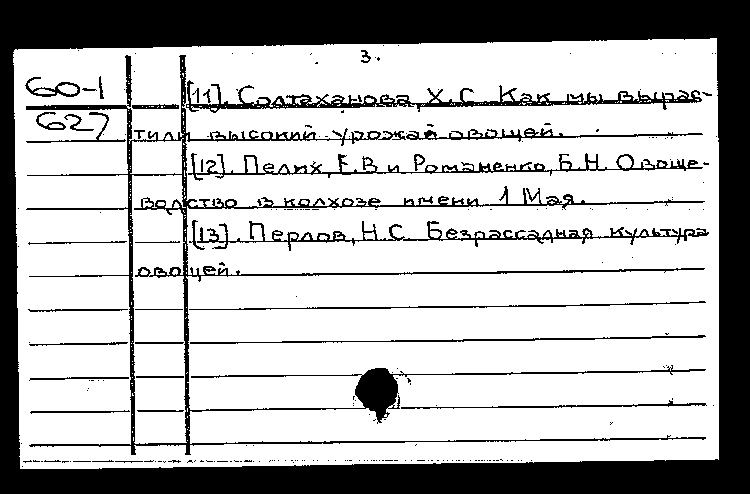 3.
60-1
[11]. Солтаханова, Х.С Как мы вырас-
627
тили высокий урожай овощей.
[12]. Пелих, Е.В и Романенко, Б.Н. Овоще-
водство в колхозе имени 1 Мая.
[13]. Перлов, Н.С Безрассадная культура
овощей.